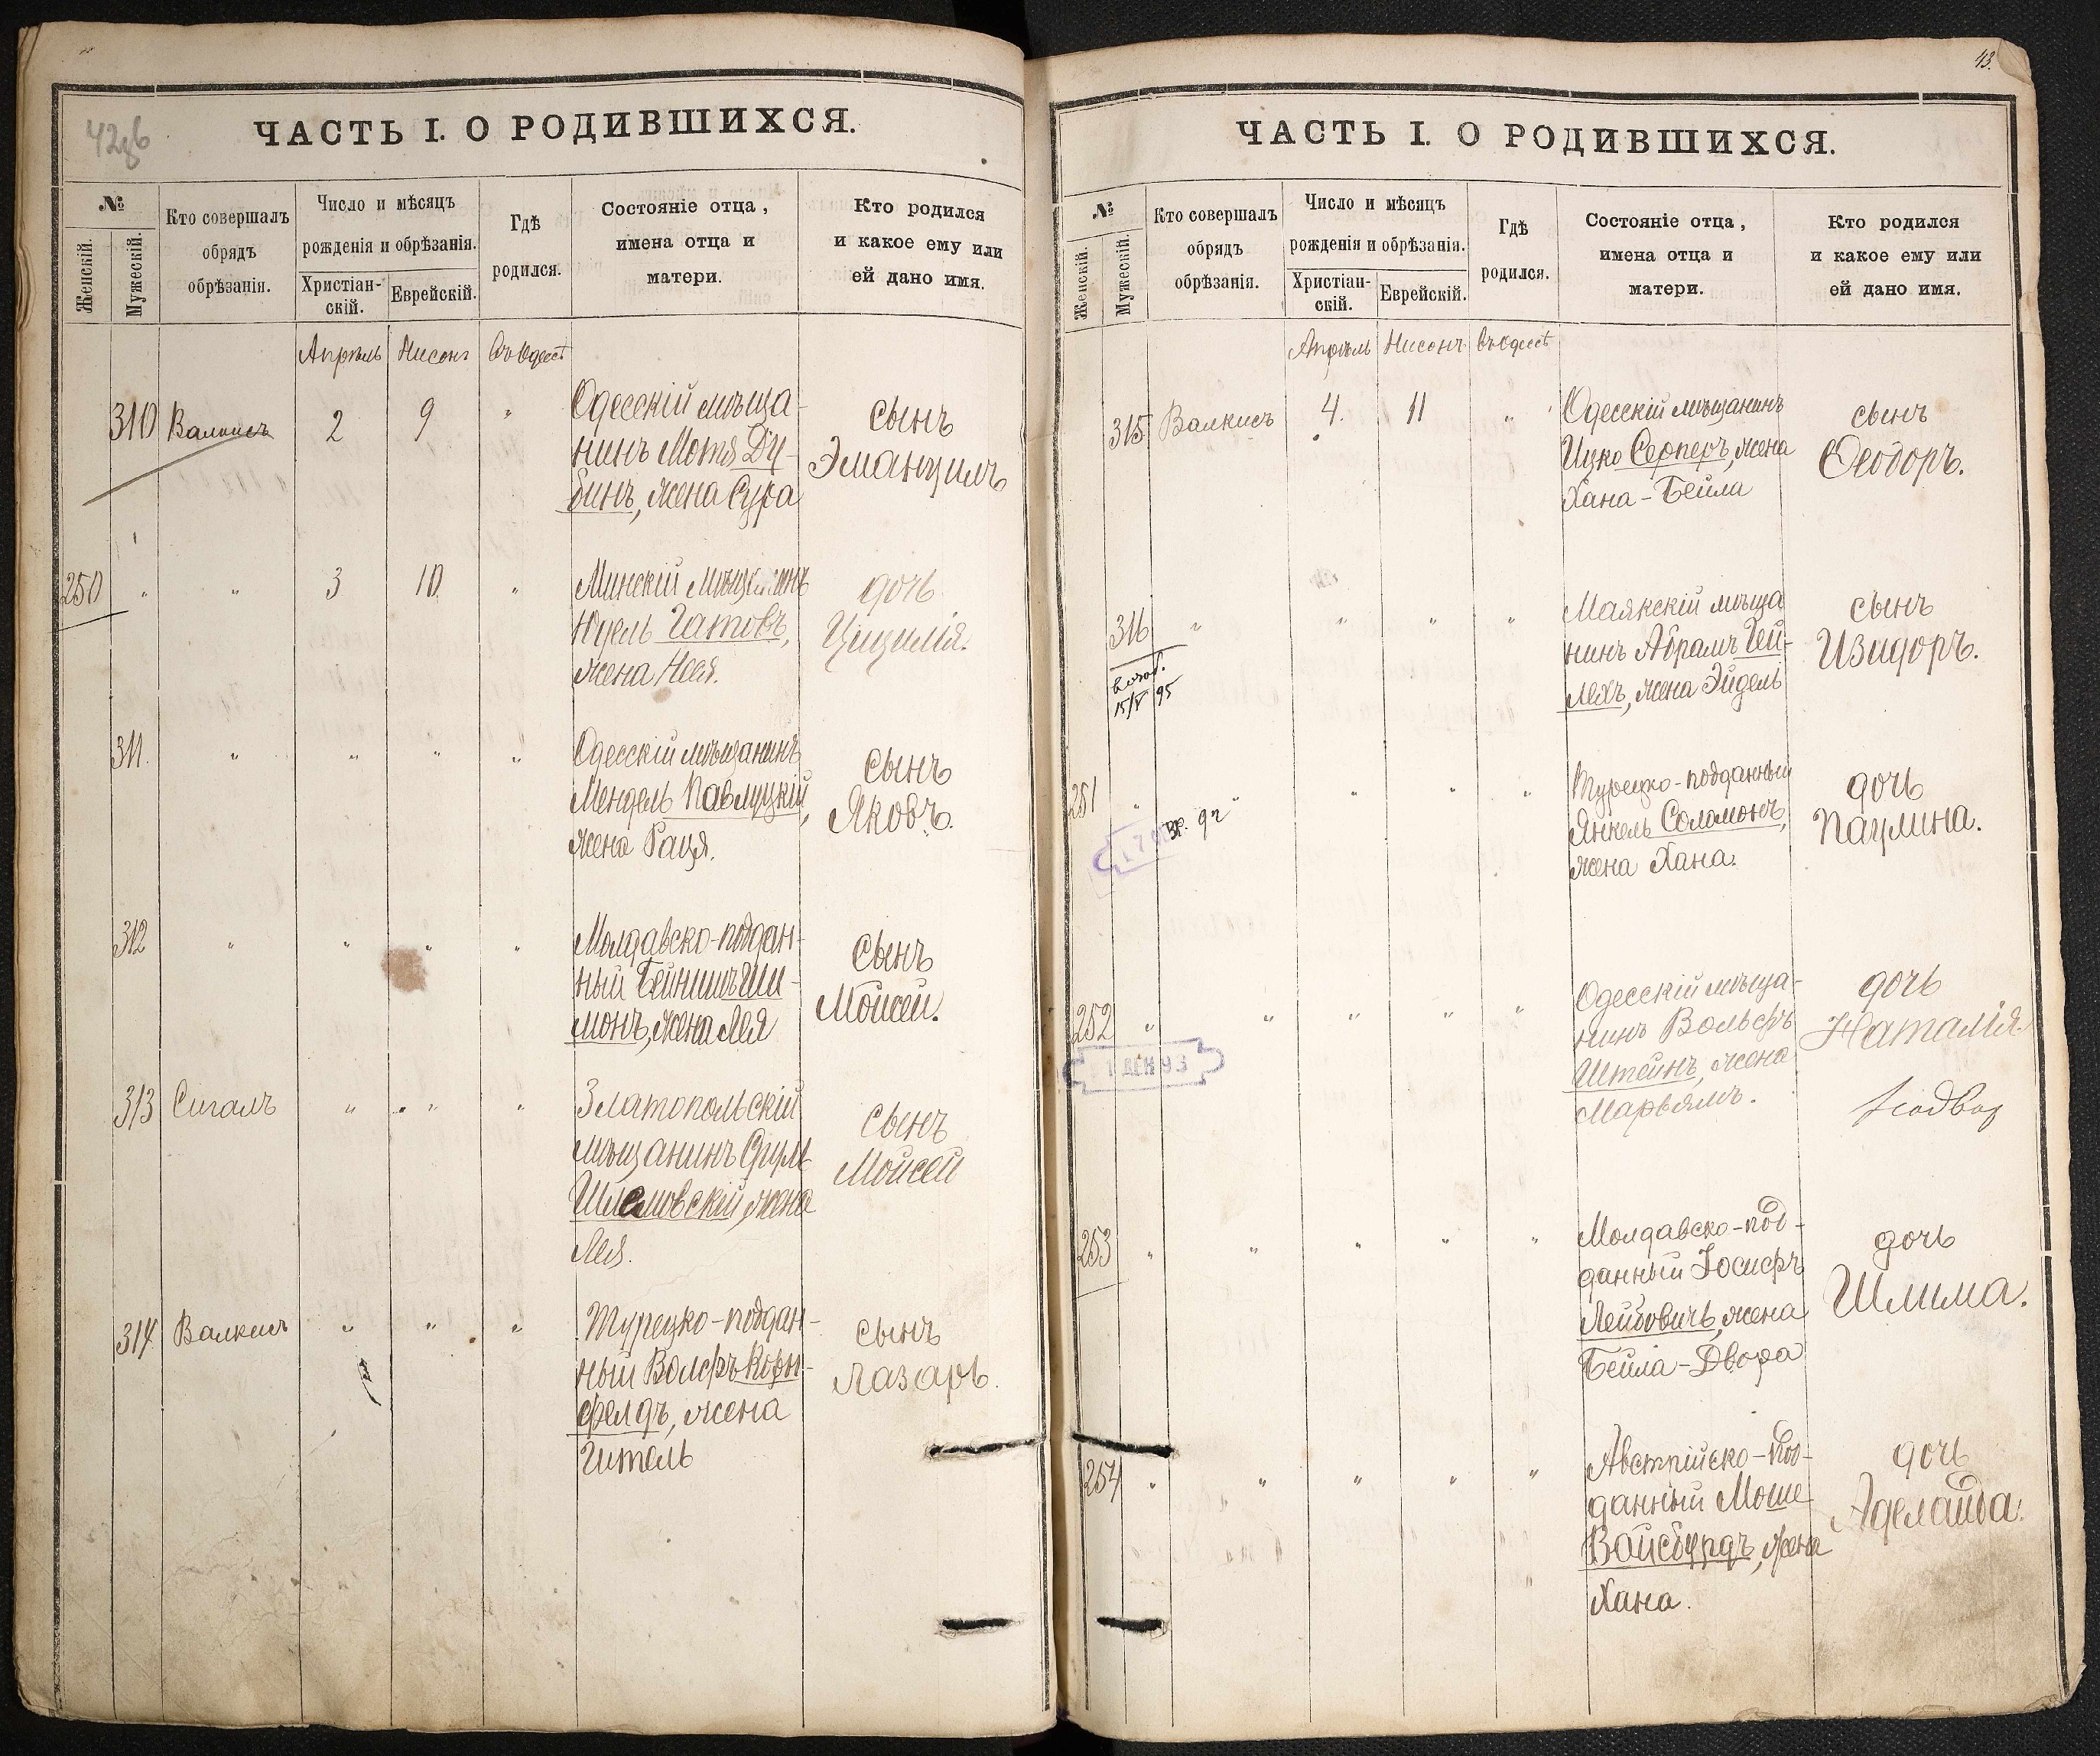 42об
ЧАСТЬ I. О РОДИВШИХСЯ.
№
Женскій.
Мужескій.
Кто совершалъ
обрядъ
обрѣзанія.
Число и мѣсяцъ
рожденія и обрѣзанія.
Христіан-
скій.
Еврейскій.
Гдѣ
родился.
Состояніе отца,
имена отца и
матери.
Кто родился
и какое ему или
ей дано имя.
Апрѣль Нисонъ Въ Одессѣ
310 Валкисъ 2 9 "
Одесскій мѣща-
нинъ Мотя Ду-
бинъ, жена Сура
сынъ
Эмануилъ
250 " " 3 10 "
Минскій мѣщанинъ
Юдель Гатовъ,
жена Нея.
дочь
Цицилія.
311. " " " "
Одесскій мѣщанинъ
Мендель Павлуцкій,
жена Рася.
сынъ
Яковъ.
312 " " " "
Молдавско-поддан-
ный Бейнишъ Ши-
монъ, жена Лея
сынъ
Мойсей.
313 Сигалъ " " "
Златопольскій
мѣщанинъ Сруль
Шлемовскій, жена
Лея.
сынъ
Мойсей
314 Валкисъ " " "
Турецко-поддан-
ный Волфъ Корн-
фелдъ, жена
Гитель
сынъ
Лазарь.
43.
ЧАСТЬ I. О РОДИВШИХСЯ.
№
Женскій.
Мужескій.
Кто совершалъ
обрядъ
обрѣзанія.
Число и мѣсяцъ
рожденія и обрѣзанія.
Христіан-
скій.
Еврейскій.
Гдѣ
родился.
Состояніе отца,
имена отца и
матери.
Кто родился
и какое ему или
ей дано имя.
Апрѣль Нисонъ Въ Одессѣ
315 Валкисъ 4. 11 "
Одесскій мѣщанинъ
Ицко Серперъ, жена
Хана-Бейла
сынъ
Ѳеодоръ.
316 " " " "
15/V 95
Маякскій мѣща
нинъ Абрамъ Гей-
лехъ, жена Эйдель
сынъ
Изидоръ.
251 " " " " "
92
Турецко-подданный
Янкель Соломонъ,
жена Хана.
дочь
Паулина.
252 " " " " "
1 ДЕК 93
Одесскій мѣща-
нинъ Вольфъ
Штейнъ, жена
Марьямъ.
дочь
Наталія
253 " " " " "
Молдавско-под-
данный Іосифъ
Лейбовичъ, жена
Бейла-Двора
дочь
Шлима.
254 " " " " "
Австрійско-под-
данный Моше
Войсбурдъ, жена
Хана.
дочь
Аделаида.